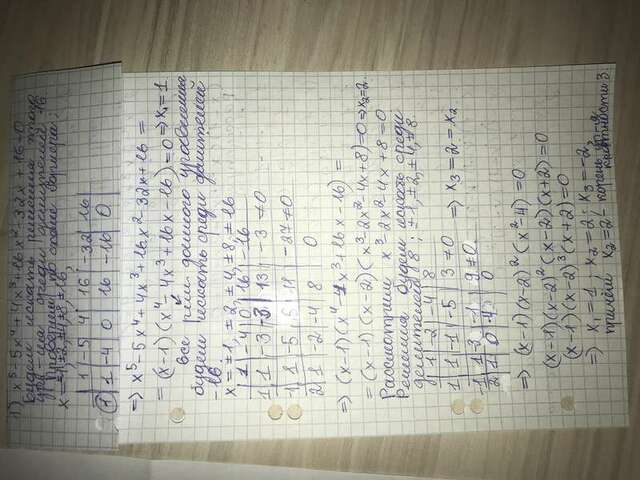 1) x⁵-5x⁴+4x³+16x²-32x+16=0
Будем искать решения этого
ур-ния среди делителей 16
и проверим по схеме Горнера:
x=±1,±2,±4,±8,±16,
| 1 | -5 | 4 | 16 | -32 | 16
1 | 1 | -4 | 0 | 16 | -16 | 0
⇒ x⁵-5x⁴+4x³+16x²-32x+16 =
= (x-1)(x⁴-4x³+16x-16)=0 ⇒ x₁=1
все реш. данного уравнения
будем искать среди делителей
-16.
x = ±1, ±2, ±4, ±8, ±16
| 1 | -4 | 0 | 16 | -16
1 | 1 | -3 | -3 | 13 | -3 ≠0
-1 | 1 | -5 | 5 | 11 | -27 ≠0
2 | 1 | -2 | -4 | 8 | 0
⇒ (x-1)(x⁴-4x³+16x-16) =
= (x-1)(x-2)(x³-2x²-4x+8)=0 ⇒ x₂=2.
Рассмотрим x³-2x²-4x+8=0
Решения будем искать среди
делителей 8: ±1,±2,±4,±8
| 1 | -2 | -4 | 8
1 | 1 | -1 | -5 | 3 ≠0
-1 | 1 | -3 | -1 | 9 ≠0.
2 | 1 | 0 | -4 | 0
⇒ x₃=2=x₂
⇒ (x-1)(x-2)²(x²-4)=0
(x-1)(x-2)²(x-2)(x+2)=0
(x-1)(x-2)³(x+2)=0
⇒ x₁=1, x₂=2; x₃=-2,
причём x₂=2 - корень ур-я
кратности 3.